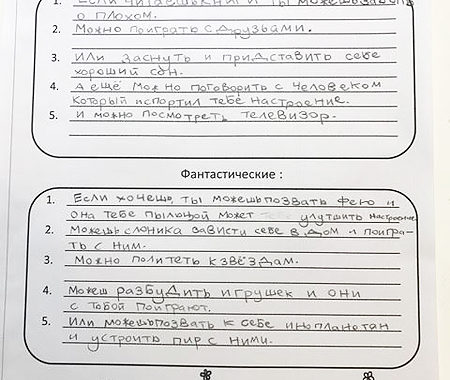 1. Если читаешь книги ты можешь забыть
о плохом.
2. Можно поиграть с друзьями.
3. Или заснуть и придставить себе
хороший сон.
4. А ещё можно поговорить с человеком
который испортил тебе настроение.
5. И можно посмотреть телевизор.
Фантастические :
1. Если хочешь, ты можешь позвать фею и
она тебе пыльцой может улутшить настроение
2. Можешь слоника зависти себе в дом и поигра-
ть с ним.
3. Можно политеть к звёздам.
4. Можеш разбудить игрушек и они
с тобой поиграют.
5. Или можешь позвать к себе инопланетян
и устроить пир с ними.